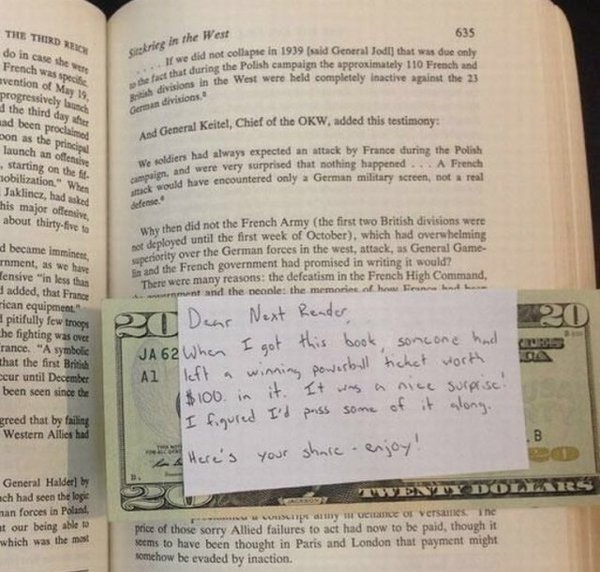 THE THIRD REICH
do in case she were
French was specific.
vention of May 19,
progressively launch
d the third day after
ad been proclaimed
oon as the principal
launch an offensive
, starting on the fif-
mobilization." When
Jaklincz, had asked
his major offensive,
about thirty-five to
d became imminent,
rnment, as we have
fensive "in less than
d added, that France
rican equipment."
d pitifully few troops
he fighting was over
rance. "A symbolic
that the first British
ccur until December
been seen since the
greed that by failing
Western Allies had
General Halder] by
ch had seen the logic
man forces in Poland,
t our being able to
which was the most
Sitzkrieg in the West
635
. . . . If we did not collapse in 1939 [said General Jodl] that was due only
to the fact that during the Polish campaign the approximately 110 French and
British divisions in the West were held completely inactive against the 23
German divisions.⁸
And General Keitel, Chief of the OKW, added this testimony:
We soldiers had always expected an attack by France during the Polish
campaign, and were very surprised that nothing happened . . . A French
attack would have encountered only a German military screen, not a real
defense.⁹
Why then did not the French Army (the first two British divisions were
not deployed until the first week of October), which had overwhelming
superiority over the German forces in the west, attack, as General Game-
lin and the French government had promised in writing it would?
There were many reasons: the defeatism in the French High Command,
the government and the people; the memories of how France had been
20
20
JA 62
A1
B
20
TWENTY DOLLARS
JACKSON
Dear Next Reader,
When I got this book, someone had
left a winning powerball ticket worth
$100. in it. It was a nice surprise!
I figured I'd pass some of it along.
Here's your share - enjoy!
conscript army in defiance of Versailles. The
price of those sorry Allied failures to act had now to be paid, though it
seems to have been thought in Paris and London that payment might
somehow be evaded by inaction.